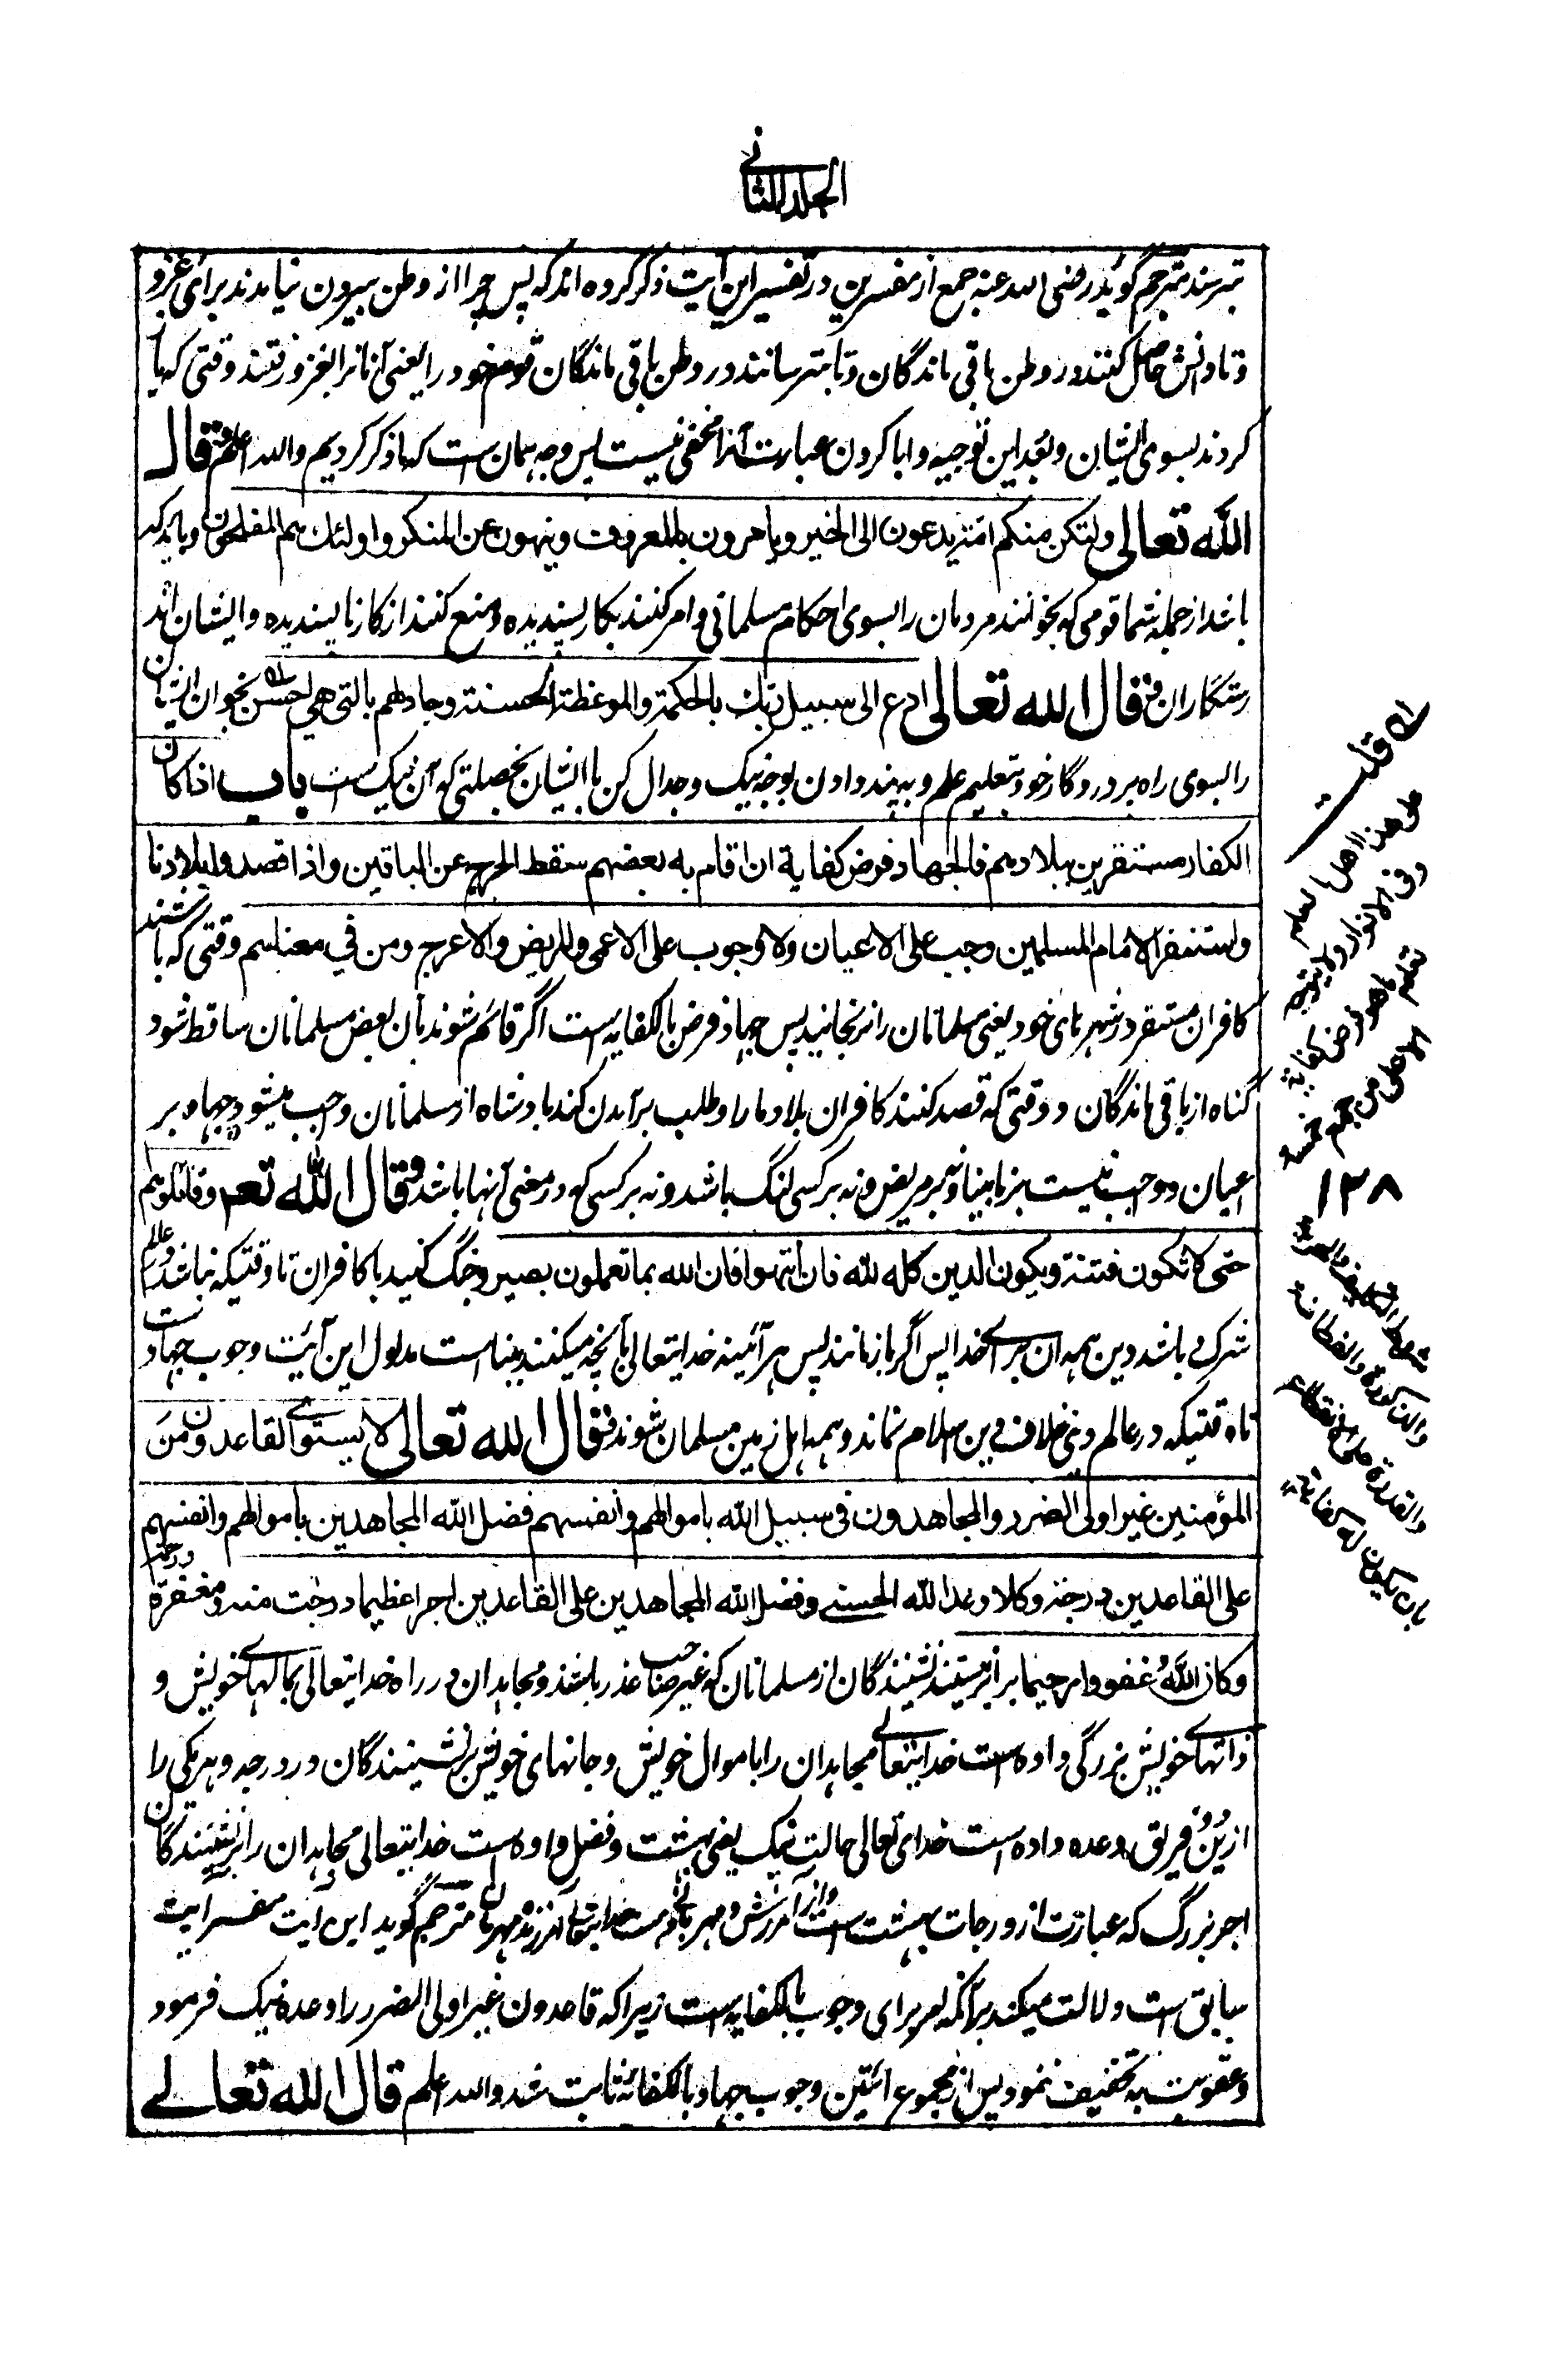 الجلد الثانی
بترسند مترجم گوید رضی الله عنه جمع از مفسرین در تفسیر این آیت ذکر کرده اند که پس چرا از وطن بیرون نیامدند برای غزو
و تا دانش حاصل کنند در وطن باقی ماندگان و تا بترسانند در وطن باقی ماندگان قوم خود را یعنی آنانرا که بغزو رفتند وقتی که باز
کردند بسوی ایشان و بُعد این توجیه و ابا کردن عبارت آنرا مخفی نیست پس وجه همان است که ما ذکر کردیم والله اعلم وقال
الله تعالی ولتکن منکم امة یدعون الی الخیر ویامرون بالمعروف وینهون عن المنکر واولئك هم المفلحون و باید که
باشد از جمله شما قومی که بخوانند مردمان را بسوی احکام مسلمانی و امر کنند بکار پسندیده و منع کنند از کار ناپسندیده و ایشان اند
رستگاران وقال الله تعالی ادع الی سبیل ربك بالحکمة والموعظة الحسنة وجادلهم بالتی هی احسن بخوان ایشان
را بسوی راه پروردگار خود بتعلیم علم و به پند دادن بوجه نیک و جدال کن با ایشان بخصلتی که آن نیک است باب اذا کان
الکفار مستنفرین ببلادهم فالجهاد فرض کفایة ان اقام به بعضهم سقط الحرج عن الباقین واذا قصدوا بلادنا
واستنفر الامام المسلمین وجب علی الاعیان ولا وجوب علی الاعمی والمریض والاعرج ومن فی معناهم وقتی که باشند
کافران مستقر در شهرهای خود یعنی مسلمانان را نرنجانید پس جهاد فرض بالکفایه است اگر قائم شوند بآن بعض مسلمانان ساقط شود
گناه از باقی ماندگان و وقتی که قصد کنند کافران بلاد ما را و طلب برآمدن کند بادشاه از مسلمانان واجب میشود جهاد بر
اعیان و واجب نیست بر نابینا و نه بر مریض و نه بر کسی لنگ باشد و نه بر کسی که در معنی آنها باشد وقال الله تعـ وقاتلوهم
حتی لا تکون فتنة ویکون الدین کله لله فان انتهوا فان الله بما تعملون بصیر و جنگ کنید با کافران تا وقتیکه نباشد در عالم
شرک و باشد دین همه آن برای خدا پس اگر باز مانند پس هر آئینه خدایتعالی بآنچه میکنند بیناست مدلول این آیت وجوب جهاد است
تا وقتیکه در عالم دینی خلاف دین اسلام نماند و همه اهل زمین مسلمان شوند وقال الله تعالی لا یستوی القاعدون من
المؤمنین غیر اولی الضرر والمجاهدون فی سبیل الله باموالهم وانفسهم فضل الله المجاهدین باموالهم وانفسهم
علی القاعدین درجة وکلا وعد الله الحسنی وفضل الله المجاهدین علی القاعدین اجرا عظیما درجت منه ومغفرة ورحمة
وکان اللّٰهُ غفورا رحیما برابر نیستند نشینندگان از مسلمانان که غیر صاحب عذر باشند و مجاهدان در راه خدایتعالی بمالهای خویش و
ذاتهای خویش بزرگی داده است خدایتعالی مجاهدان را باموال خویش و جانهای خویش بر نشینندگان در درجه و هر یکی را
ازین دو فریق وعده داده است خدای تعالی حالت نیک یعنی بهشت و فضل داده است خدایتعالی مجاهدان را بر نشینندگان
اجر بزرگ که عبارت از درجات بهشت است و از آمرزش و مهربانی و هست خدایتعالی آمرزنده مهربان مترجم گوید این آیت مفسر آیت
سابق است و دلالت میکند بر آنکه امر برای وجوب بالکفایه است زیرا که قاعدون غیر اولی الضرر را وعده نیک فرمود
و عقوبت به تخفیف نمود پس از مجموع آئتین وجوب جهاد بالکفایه ثابت شد والله اعلم قال الله تعالے
قلت
علی هذا اهل العلم
وفی الانوار ولا یتوجه
تعلم ما هو فرض کفایة
الا علی من جمع خمسة
۱۳۸
شروط التکلیف والحریة
والذکورة والفطانة
والقدرة علی الانقطاع
بان یکون له کفایة